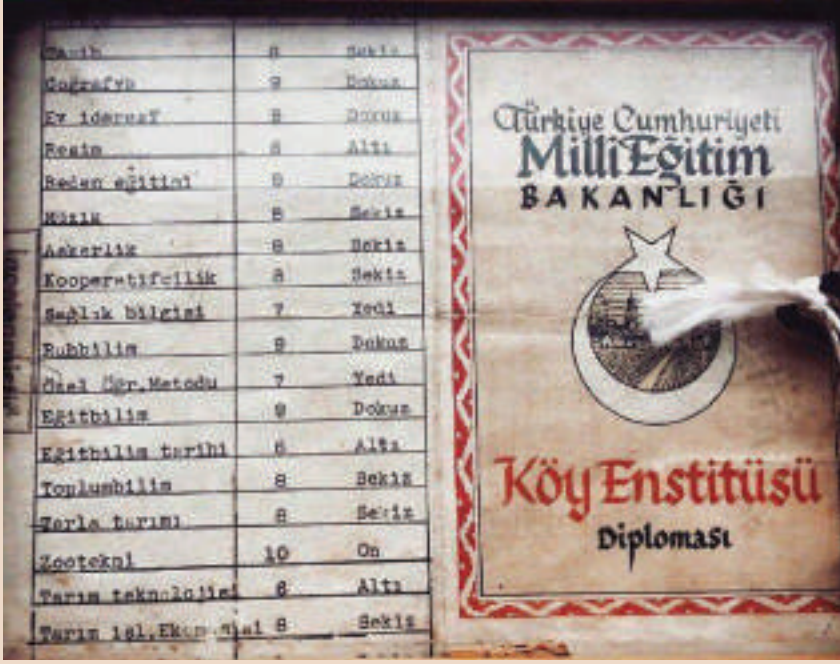 Tarih 8 Sekiz
Coğrafya 9 Dokuz
Ev idaresi Dokuz
Resim 6 Altı
Beden eğitimi 9 Dokuz
Müzik 8 Sekiz
Askerlik 8 Sekiz
Kooperatifcilik 8 Sekiz
Sağlık bilgisi 7 Yedi
Ruhbilim 9 Dokuz
Özel Öğr.Metodu 7 Yedi
Eğitbilim 9 Dokuz
Eğitbilim tarihi 6 Altı
Toplumbilim 8 Sekiz
Tarla tarımı 8 Sekiz
Zootekni 10 On
Tarım teknolojisi 6 Altı
Tarım işl.Ekonomisi 8 Sekiz
Türkiye Cumhuriyeti
Milli Eğitim
BAKANLIĞI
Köy Enstitüsü
Diploması